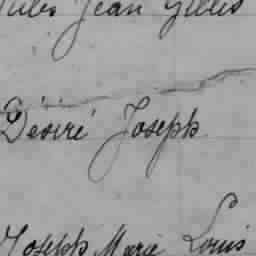 Jules Jean Gilles
Désiré Joseph
Joseph Marie Louis